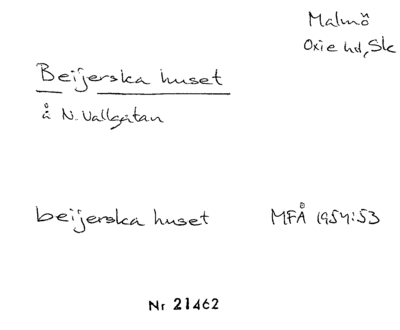 Malmö
Oxie hd, Sk
Beijerska huset
å N. Vallgatan
beijerska huset MFÅ 1954:53
Nr 21462